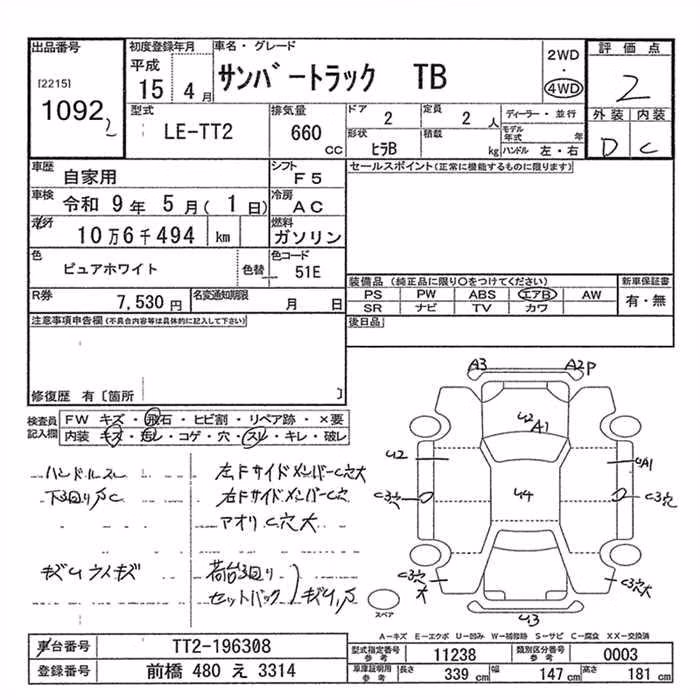 出品番号 初度登録年月 車名・グレード 評価点
[2215] 平成 15 4月 サンバートラック TB 2WD ・ 4WD 2
1092
型式 LE-TT2 排気量 660 cc ドア 2 定員 2人 ディーラー・並行 外装 内装
形状 ヒラB 積載 kg モデル年式 年 D C
ハンドル 左・右
車歴 自家用 シフト F5 セールスポイント(正常に機能するものに限ります)
車検 令和 9年 5月( 1日) 冷房 AC
走行 10万6千494 km 燃料 ガソリン
色 ピュアホワイト 色替 色コード 51E
装備品(純正品に限り○をつけてください) 新車保証書
R券 7,530円 名変通知期限 月 日 PS PW ABS エアB AW 有・無
SR ナビ TV カワ
注意事項申告欄(不具合内容等は具体的に記入して下さい) 後日品
修復歴 有〔箇所 〕
検査員記入欄 FW キズ・飛石・ヒビ割・リペア跡・×要
内装 キズ・汚レ・コゲ・穴・スレ・キレ・破レ
ハンドルスレ 左Fサイドメンバー C穴大
下回りS C 右Fサイドメンバー C穴
アオリ C穴大
キズU ライキズ 荷台回り
セットバック キズU,S
A3 A2P
U2 A1
U2 UA1
C3穴 U4 C3穴
C3穴大 C3穴大
U3
スペア
A−キズ E−エクボ U−凹み W−補修跡 S−サビ C−腐食 XX−交換済
車台番号 TT2-196308 型式指定番号 参考 11238 類別区分番号 参考 0003
登録番号 前橋 480 え 3314 車庫証明用 参考 長さ 339 cm 幅 147 cm 高さ 181 cm